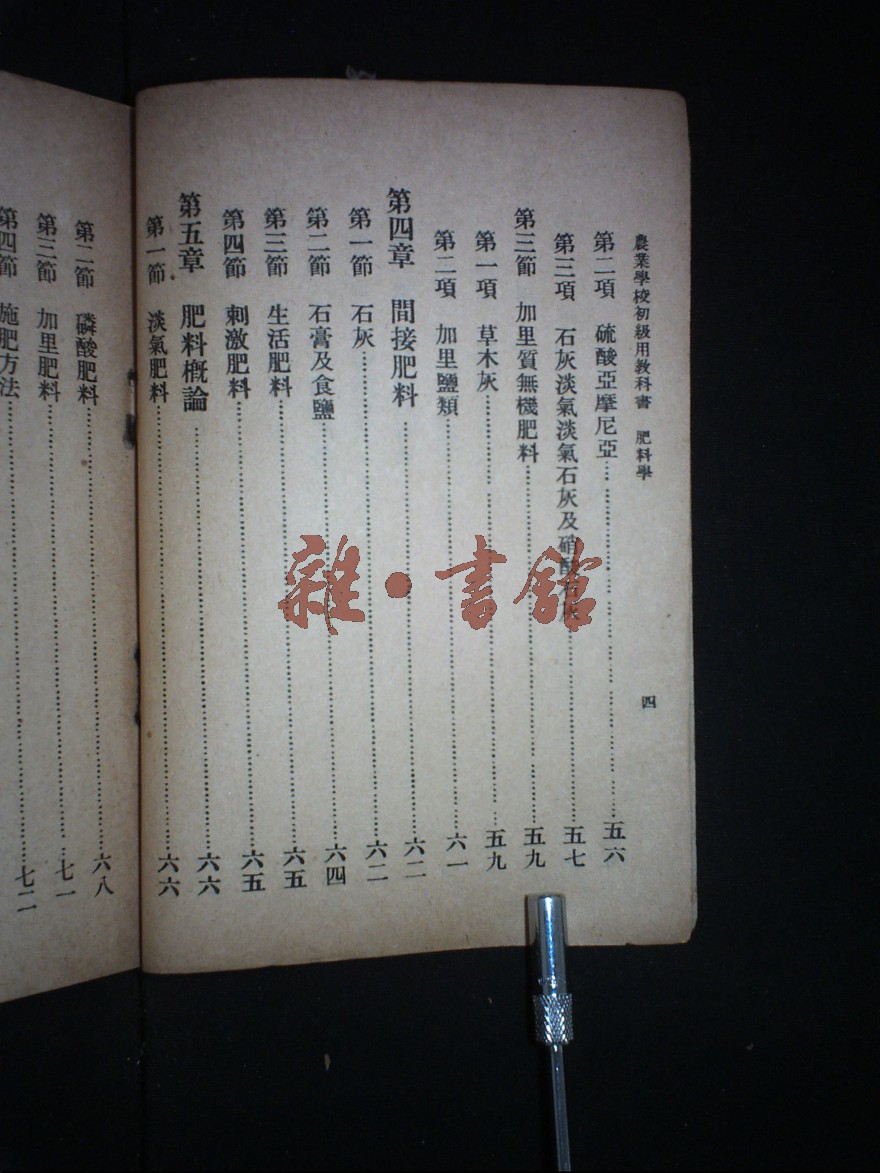 農業學校初級用教科書 肥料學 四
第二項 硫酸亞摩尼亞……五六
第三項 石灰淡氣淡氣石灰及硝酸石灰……五七
第三節 加里質無機肥料……五九
第一項 草木灰……五九
第二項 加里鹽類……六一
第四章 間接肥料……六二
第一節 石灰……六二
第二節 石膏及食鹽……六四
第三節 生活肥料……六五
第四節 刺激肥料……六五
第五章 肥料槪論……六六
第一節 淡氣肥料……六六
第二節 磷酸肥料……六八
第三節 加里肥料……七一
第四節 施肥方法……七二
雜·書館